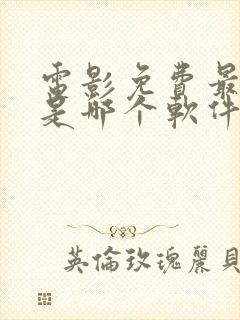 電影免費最
是哪个軟件
英倫玫瑰麗貝